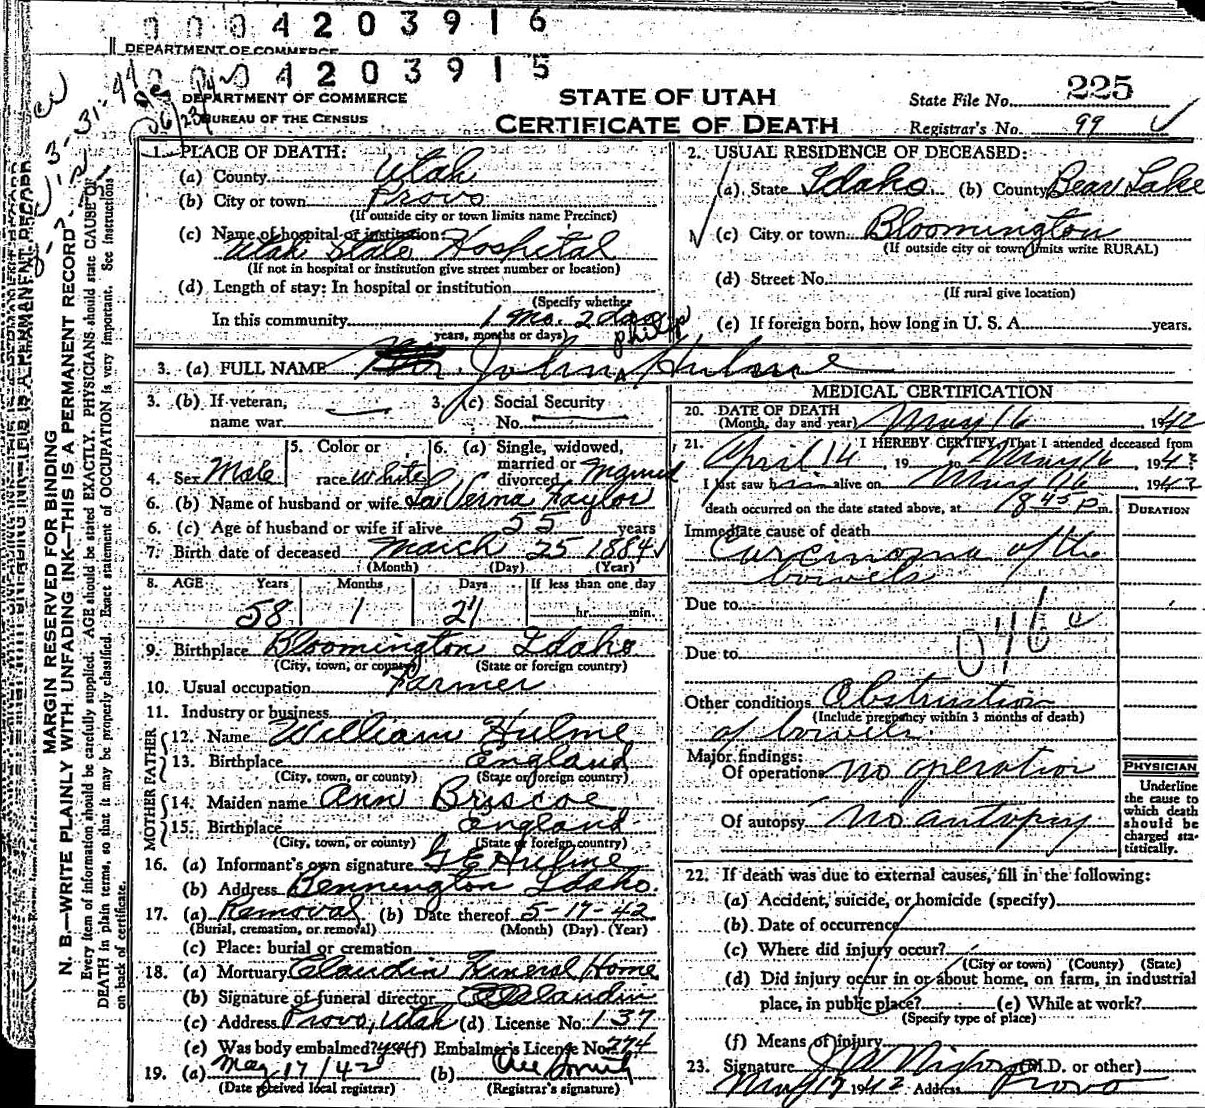 0 0 0 4 2 0 3 9 1 6
DEPARTMENT OF COMMERCE
0 0 0 4 2 0 3 9 1 5
DEPARTMENT OF COMMERCE
BUREAU OF THE CENSUS
STATE OF UTAH
CERTIFICATE OF DEATH
State File No. 225
Registrar's No. 99
3-31-44
MARGIN RESERVED FOR BINDING
N. B.—WRITE PLAINLY WITH UNFADING INK—THIS IS A PERMANENT RECORD
Every item of information should be carefully supplied. AGE should be stated EXACTLY. PHYSICIANS should state CAUSE OF
DEATH in plain terms, so that it may be properly classified. Exact statement of OCCUPATION is very important. See instructions
on back of certificate.
1. PLACE OF DEATH:
(a) County Utah
(b) City or town Provo
(If outside city or town limits name Precinct)
(c) Name of hospital or institution:
Utah State Hospital
(If not in hospital or institution give street number or location)
(d) Length of stay: In hospital or institution
(Specify whether
In this community 1 mo. 2 days
years, months or days)
2. USUAL RESIDENCE OF DECEASED:
(a) State Idaho (b) County Bear Lake
(c) City or town Bloomington
(If outside city or town limits write RURAL)
(d) Street No.
(If rural give location)
(e) If foreign born, how long in U. S. A. years.
3. (a) FULL NAME John Philip Hulme
3. (b) If veteran, name war
3. (c) Social Security No.
4. Sex Male
5. Color or race White
6. (a) Single, widowed, married or divorced Married
6. (b) Name of husband or wife LaVerna Taylor
6. (c) Age of husband or wife if alive 55 years
7. Birth date of deceased March 25 1884
(Month) (Day) (Year)
8. AGE Years Months Days If less than one day
58 1 21 hr. min.
9. Birthplace Bloomington Idaho
(City, town, or county) (State or foreign country)
10. Usual occupation Farmer
11. Industry or business
FATHER
12. Name William Hulme
13. Birthplace England
(City, town, or county) (State or foreign country)
MOTHER
14. Maiden name Ann Briscoe
15. Birthplace England
(City, town, or county) (State or foreign country)
16. (a) Informant's own signature G E Hulme
(b) Address Bennington Idaho.
17. (a) Removal (b) Date thereof 5-17-42
(Burial, cremation, or removal) (Month) (Day) (Year)
(c) Place: burial or cremation
18. (a) Mortuary Claudin Funeral Home
(b) Signature of funeral director Claudin
(c) Address Provo, Utah (d) License No. 137
(e) Was body embalmed? yes (f) Embalmer's License No. 774
19. (a) May 17/42 (b)
(Date received local registrar) (Registrar's signature)
MEDICAL CERTIFICATION
20. DATE OF DEATH May 16 1942
(Month, day and year)
21. I HEREBY CERTIFY, That I attended deceased from
April 14, 19 to May 16, 194
I last saw him alive on May 16 194
death occurred on the date stated above, at 8 45 P m.
DURATION
Immediate cause of death
Carcinoma of the
bowels
Due to
046
Due to
Other conditions Obstruction
(Include pregnancy within 3 months of death)
of bowels.
Major findings:
Of operations no operation
Of autopsy no autopsy
PHYSICIAN
Underline
the cause to
which death
should be
charged sta-
tistically.
22. If death was due to external causes, fill in the following:
(a) Accident, suicide, or homicide (specify)
(b) Date of occurrence
(c) Where did injury occur?
(City or town) (County) (State)
(d) Did injury occur in or about home, on farm, in industrial
place, in public place? (e) While at work?
(Specify type of place)
(f) Means of injury
23. Signature (M.D. or other)
May 17 1942 Address Provo